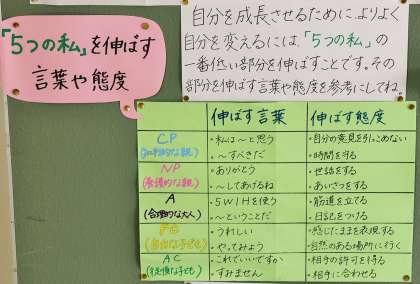 「5つの私」を伸ばす
言葉や態度
自分を成長させるために、よりよく
自分を変えるには、「5つの私」の
一番低い部分を伸ばすことです。その
部分を伸ばす言葉や態度を参考にしてね。
伸ばす言葉 伸ばす態度
CP
(批判的な親)
・私は〜と思う
・〜すべきだ
・自分の意見を引っこめない
・時間を守る
NP
(養護的な親)
・ありがとう
・〜してあげるね
・世話をする
・あいさつをする
A
(合理的な大人)
・5W1Hを使う
・〜ということだ
・筋道を立てる
・日記をつける
FC
(自由な子ども)
・うれしい
・やってみよう
・感じたままを表現する
・自然のある場所に行く
AC
(従順な子ども)
・これでいいですか
・すみません
・相手の許可を得る
・相手に合わせる